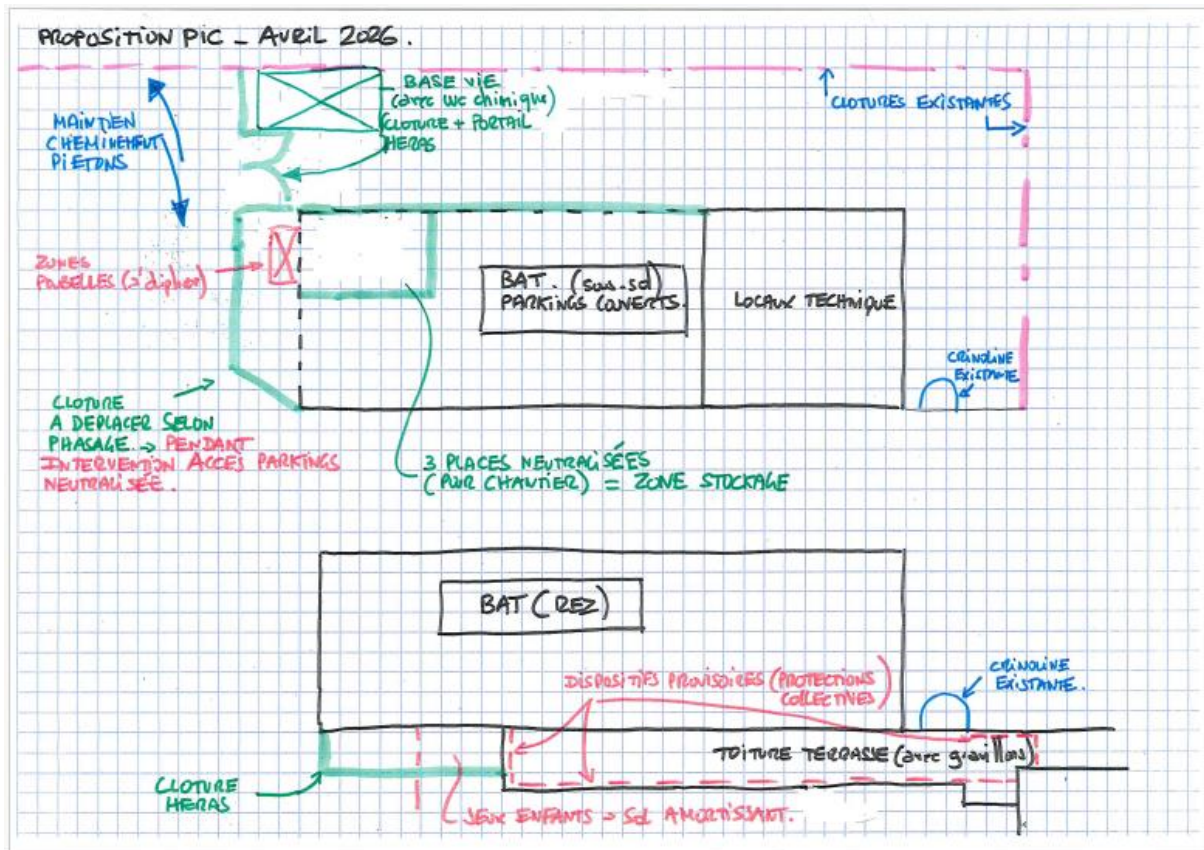 PROPOSITION PIC - AVRIL 2026.
BASE VIE
(avec wc chimique)
CLOTURE + PORTAIL
HERAS
CLOTURES EXISTANTES
MAINTIEN
CHEMINEMENT
PIETONS
ZONES
POUBELLES (à déplacer)
BAT. (sous-sol)
PARKINGS COUVERTS.
LOCAUX TECHNIQUE
CRINOLINE
EXISTANTE
CLOTURE
A DEPLACER SELON
PHASAGE → PENDANT
INTERVENTION ACCES PARKINGS
NEUTRALISÉE.
3 PLACES NEUTRALISÉES
(POUR CHANTIER) = ZONE STOCKAGE
BAT (REZ)
DISPOSITIFS PROVISOIRES (PROTECTIONS
COLLECTIVES)
CRINOLINE
EXISTANTE.
TOITURE TERRASSE (avec gravillons)
CLOTURE
HERAS
JEUX ENFANTS → Sol AMORTISSANT.